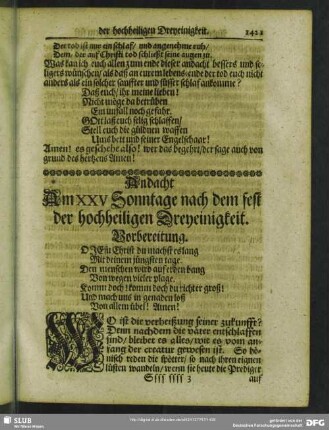 der hochheiligen Dreyeinigkeit. 1421
Der tod ist nur ein schlaf / und angenehme ruh /
Dem, der auf Christi tod schliesst seine augen zu.
Was kan ich euch allen zum ende dieser andacht bessers und se-
ligers wünschen / als daß an eurem lebens-ende der tod euch nicht
anders als ein solcher sanffter und süsser schlaf ankomme?
Daß euch / ihr meine lieben!
Nicht möge da betrüben
Ein unfall noch gefahr.
GOtt laß euch selig schlaffen /
Stell euch die güldnen waffen
Ums bett und seiner Engel schaar!
Amen! es geschehe also! wer das begehrt / der sage auch von
grund des hertzens Amen!
Andacht
Am XXV Sonntage nach dem fest
der hochheiligen Dreyeinigkeit.
Vorbereitung.
OJEsu Christ du machst es lang
Mit deinem jüngsten tage.
Den menschen wird auf erden bang
Von wegen vieler plage.
Komm doch! komm doch du richter groß!
Und mach uns in genaden loß
Von allem übel! Amen!
WO ist die verheißung seiner zukunfft?
Denn nachdem die väter entschlaffen
sind / bleibet es alles / wie es vom an-
fang der creatur gewesen ist. So hö-
nisch reden die spötter / so nach ihren eignen
lüsten wandeln / wenn sie heute die Prediger
Ssss ssss 3 auf
SLUB
DFG